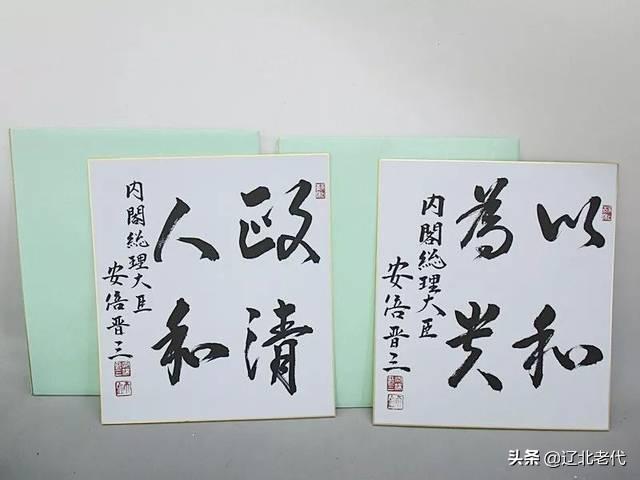 政清
人和
内閣総理大臣
安倍晋三
以和
為貴
内閣総理大臣
安倍晋三
头条 @辽北老代